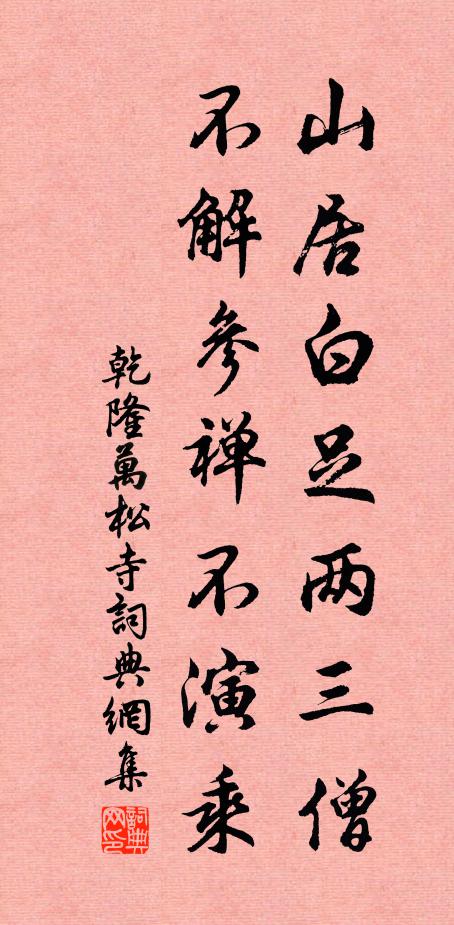 山居白足两三僧
不解參禅不演乘
乾隆萬松寺詞典網集
詞典网印